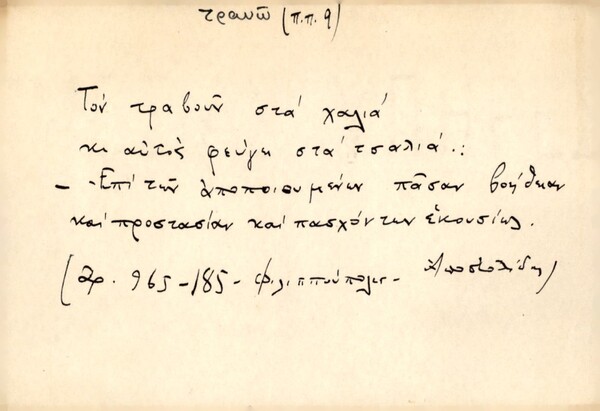 τραυῶ (π.π. 9)
Τὸν τραβοῦν στὰ χαλιὰ
κι αὐτὸς φεύγει στὰ τσαλιά.:
– Ἐπὶ τῶν ἀποποιουμένων πᾶσαν βοήθειαν
καὶ προστασίαν καὶ πασχόντων ἑκουσίως.
(Ἀρ. 965-185- Φιλιππούπολις- Ἀποστολίδης)